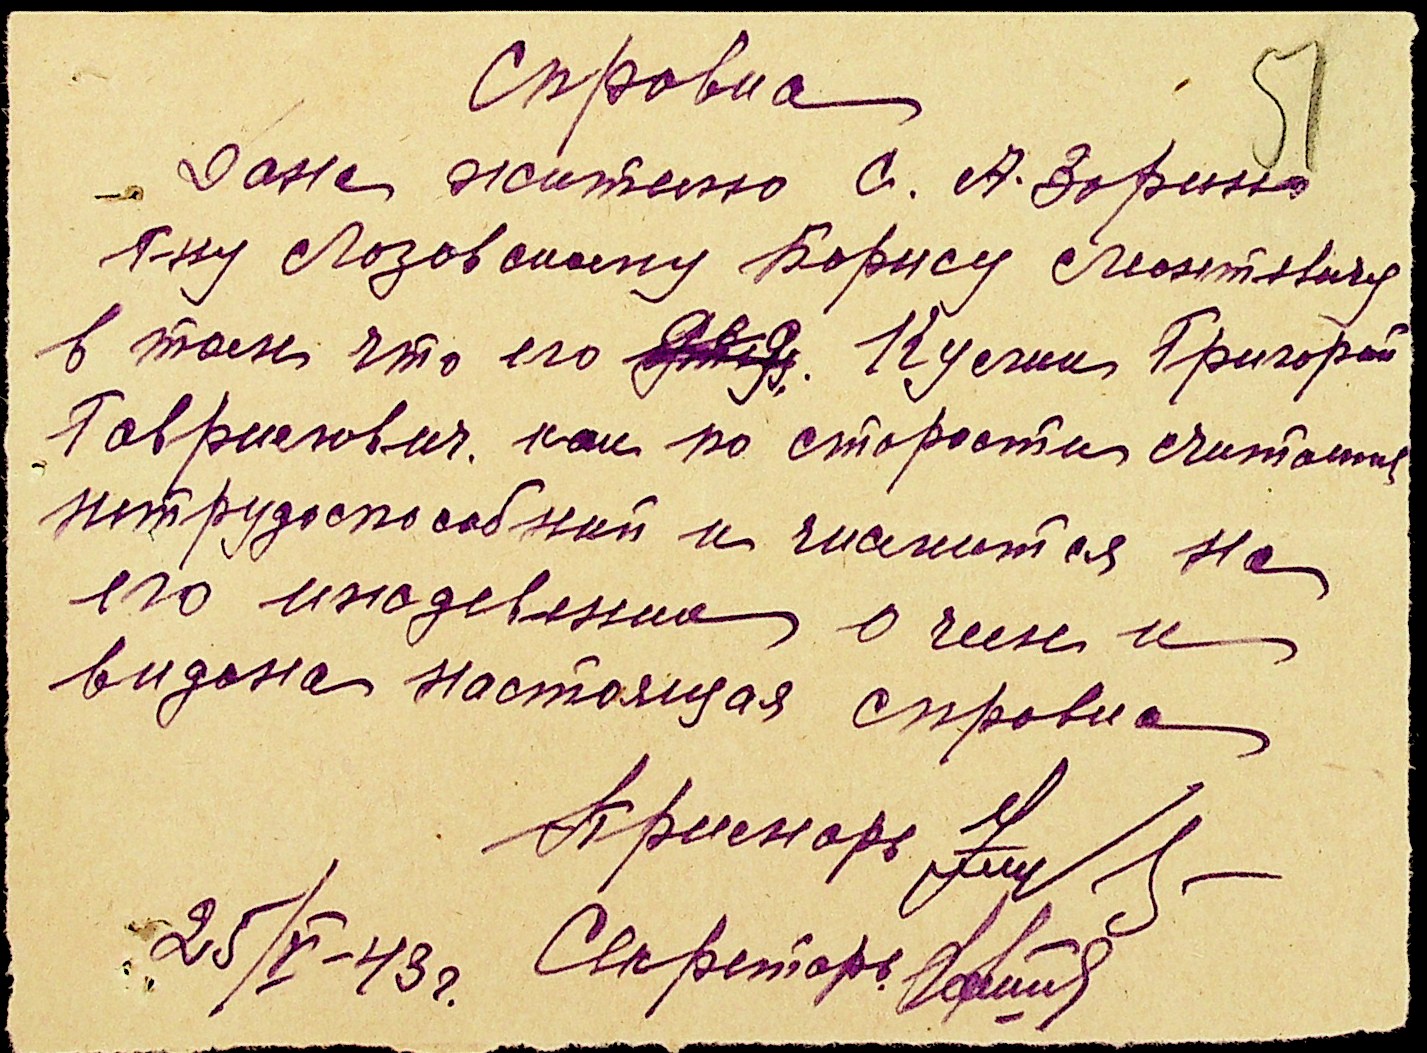 Справка
51
Дана жителю С. А. Зорино
г-ну Лозовскому Борису Леонтевичу
в том что его дед. Куслии Григорий
Гаврилович. как по старости считается
нетрудоспособний и числится на
его иждевении о чем и
видана настоящая справка
Примарь
25/XI-43 г. Секретарь